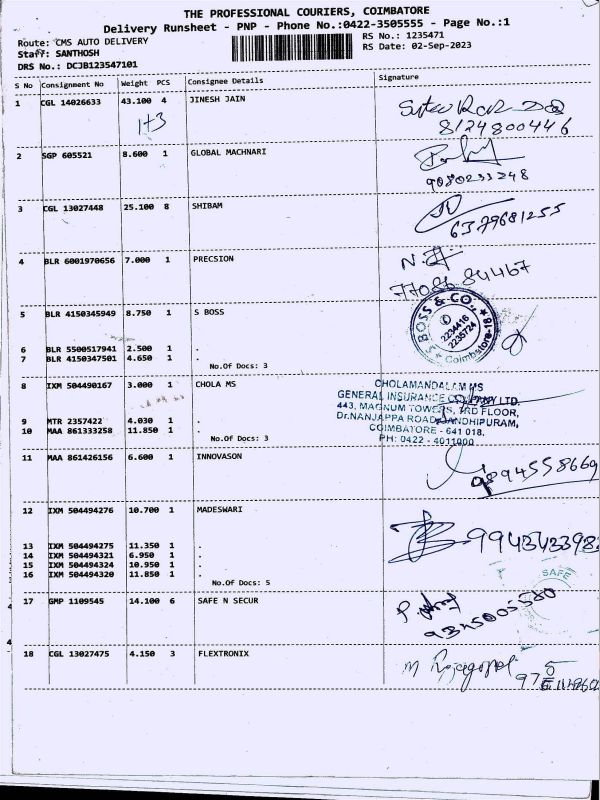 THE PROFESSIONAL COURIERS, COIMBATORE
Delivery Runsheet - PNP - Phone No.:0422-3505555 - Page No.:1
Route: CMS AUTO DELIVERY RS No.: 1235471
Staff: SANTHOSH RS Date: 02-Sep-2023
DRS No.: DCJB123547101
S No Consignment No Weight PCS Consignee Details Signature
1 CGL 14026633 43.100 4 JINESH JAIN
1+3 8124800446
2 SGP 605521 8.600 1 GLOBAL MACHNARI
9080233248
3 CGL 13027448 25.100 8 SHIBAM
6379681255
4 BLR 6001970656 7.000 1 PRECSION
5 BLR 4150345949 8.750 1 S BOSS
S. BOSS & CO.,
2234416
2235724
Coimbatore-18
6 BLR 5500517941 2.500 1 .
7 BLR 4150347501 4.650 1 .
No.Of Docs: 3
8 IXM 504490167 3.000 1 CHOLA MS
CHOLAMANDALAM MS
GENERAL INSURANCE COMPANY LTD.
443, MAGNUM TOWERS, 3RD FLOOR,
Dr.NANJAPPA ROAD, GANDHIPURAM,
COIMBATORE - 641 018.
PH: 0422 - 4011000
9 MTR 2357422 4.030 1 .
10 MAA 861333258 11.850 1 .
No.Of Docs: 3
11 MAA 861426156 6.600 1 INNOVASON
9894558669
12 IXM 504494276 10.700 1 MADESWARI
13 IXM 504494275 11.350 1 .
14 IXM 504494321 6.950 1 .
15 IXM 504494324 10.950 1 .
16 IXM 504494320 11.850 1 .
No.Of Docs: 5
17 GMP 1109545 14.100 6 SAFE N SECUR
SAFE
18 CGL 13027475 4.150 3 FLEXTRONIX
M Rajagopal